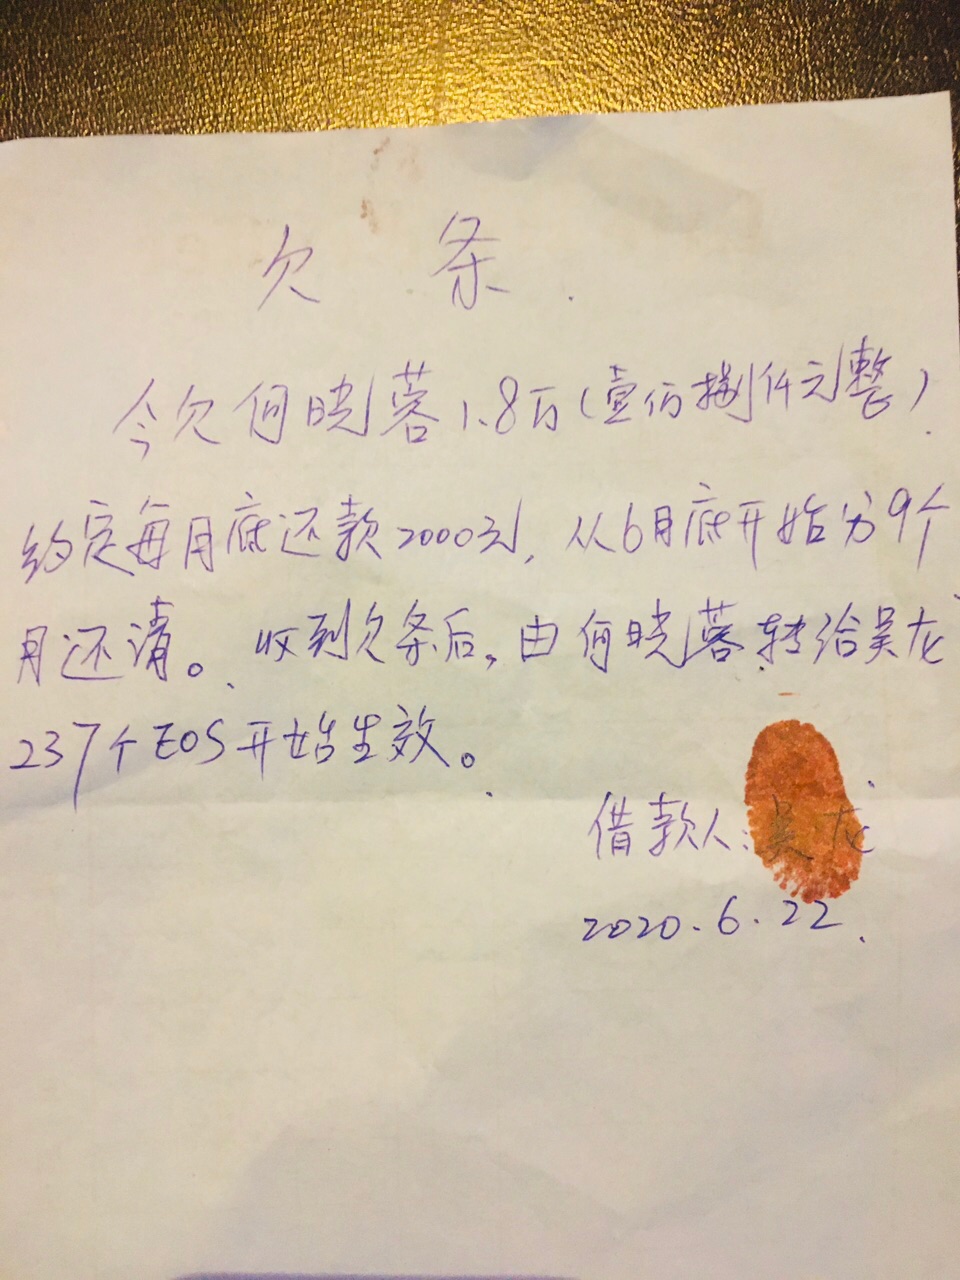 欠 条
今欠何晓蓉1.8万(壹佰捌仟元整)
约定每月底还款2000元,从6月底开始分9个
月还清。收到欠条后,由何晓蓉转给吴龙
237个EOS开始生效。
借款人:吴龙
2020.6.22